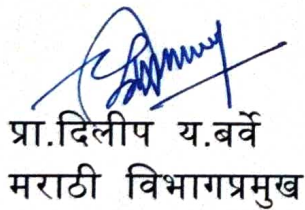 प्रा.दिलीप य.बर्वे
मराठी विभागप्रमुख